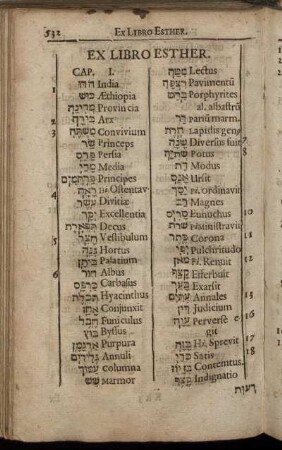 532 EX LIBRO ESTHER.
EX LIBRO ESTHER.
CAP. I.
הודו India
1 כוש Æthiopia
מדינה Provincia
2 בירה Arx
3 משתה Convivium
שר Princeps
פרס Persia
מדי Media
פרתמים Principes
4 ראה Hi. Ostentav.
עשר Divitiæ
יקר Excellentia
תפארת Decus
5 חצר Vestibulum
גנה Hortus
ביתן Palatium
6 חור Albus
כרפס Carbasus
תכלת Hyacinthus
אחז Conjunxit
חבל Funiculus
בוץ Byssus
ארגמן Purpura
גלילים Annuli
עמוד Columna
שש Marmor
מטה Lectus
רצפה Pavimentū
בהט Porphyrites
al. albastrū
דר Pariū marm.
סחרת Lapidis gen.
שנה Diversus fuit
שתיה Potus 8
דת Modus
אנס Ursit
יסד Pi. Ordinavit
רב Magnes
סריס Eunuchus 10
שרת Pi. Ministravit
כתר Corona 11
יפי Pulchritudo
מאן Pi. Renuit 12
קצף Efferbuit
בער Exarsit
עתים Annales 13
דין Judicium
עוה Perversè e- 16
git
בזה Hi. Sprevit 17
כדי Satis 18
בזיון Contemtus.
קצף Indignatio
רעות